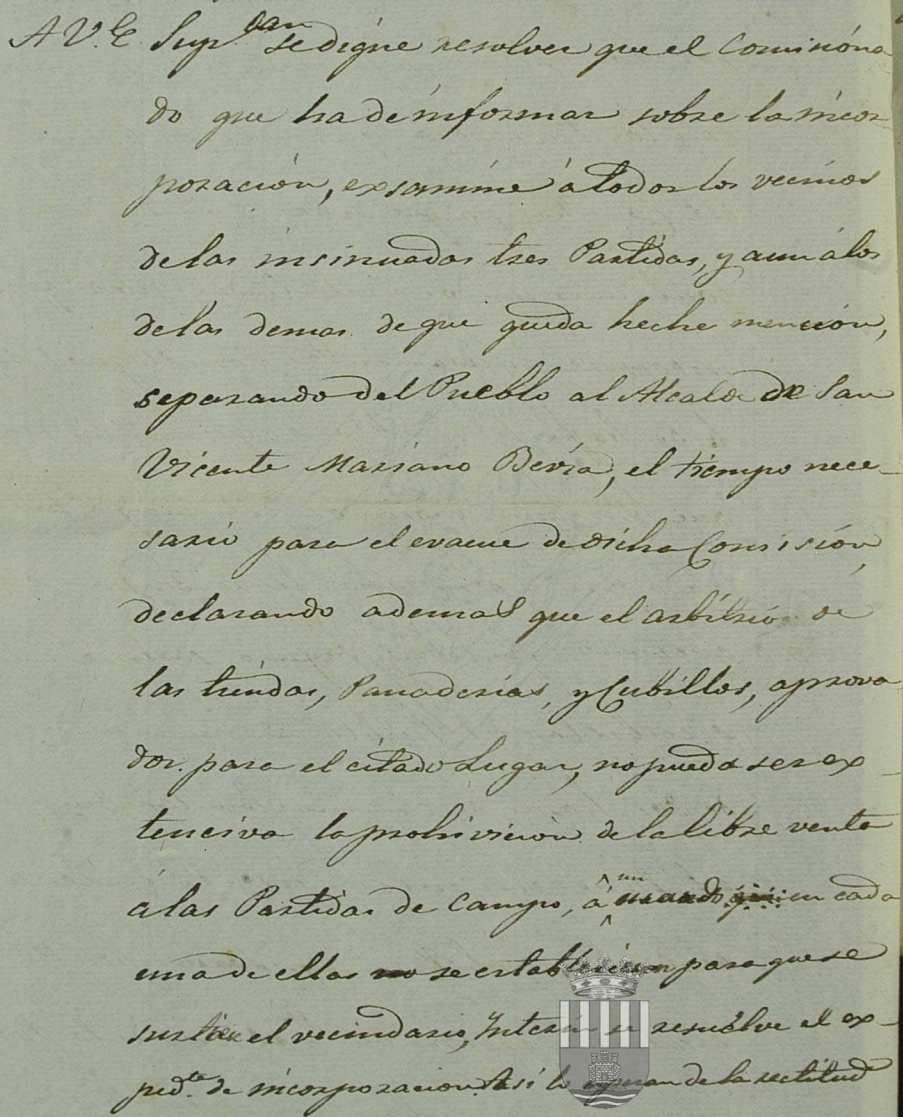 A V. E. Sup.can se digne resolver que el Comisiona
do que ha de informar sobre la incor
poracion, exsamine á todos los vecinos
de las insinuadas tres Partidas, y aun á los
de las demas de que queda heche mencion,
separando del Pueblo al Alcalde de San
Vicente Mariano Bevia, el tiempo nece-
sario para el evacue de dicha Comisión,
declarando ademas que el arbitrio de
las tiendas, Panaderias, y Cubillos, aprova
dos para el citado Lugar, no pueda ser ex-
tenciva la prohivicion de la libre venta
á las Partidas de Campo, á un en cada
una de ellas no se establecieren para que se
surtiere el vecindario, Interin se resuelve el ex-
ped.te de incorporacion Asi lo esperan de la rectitud